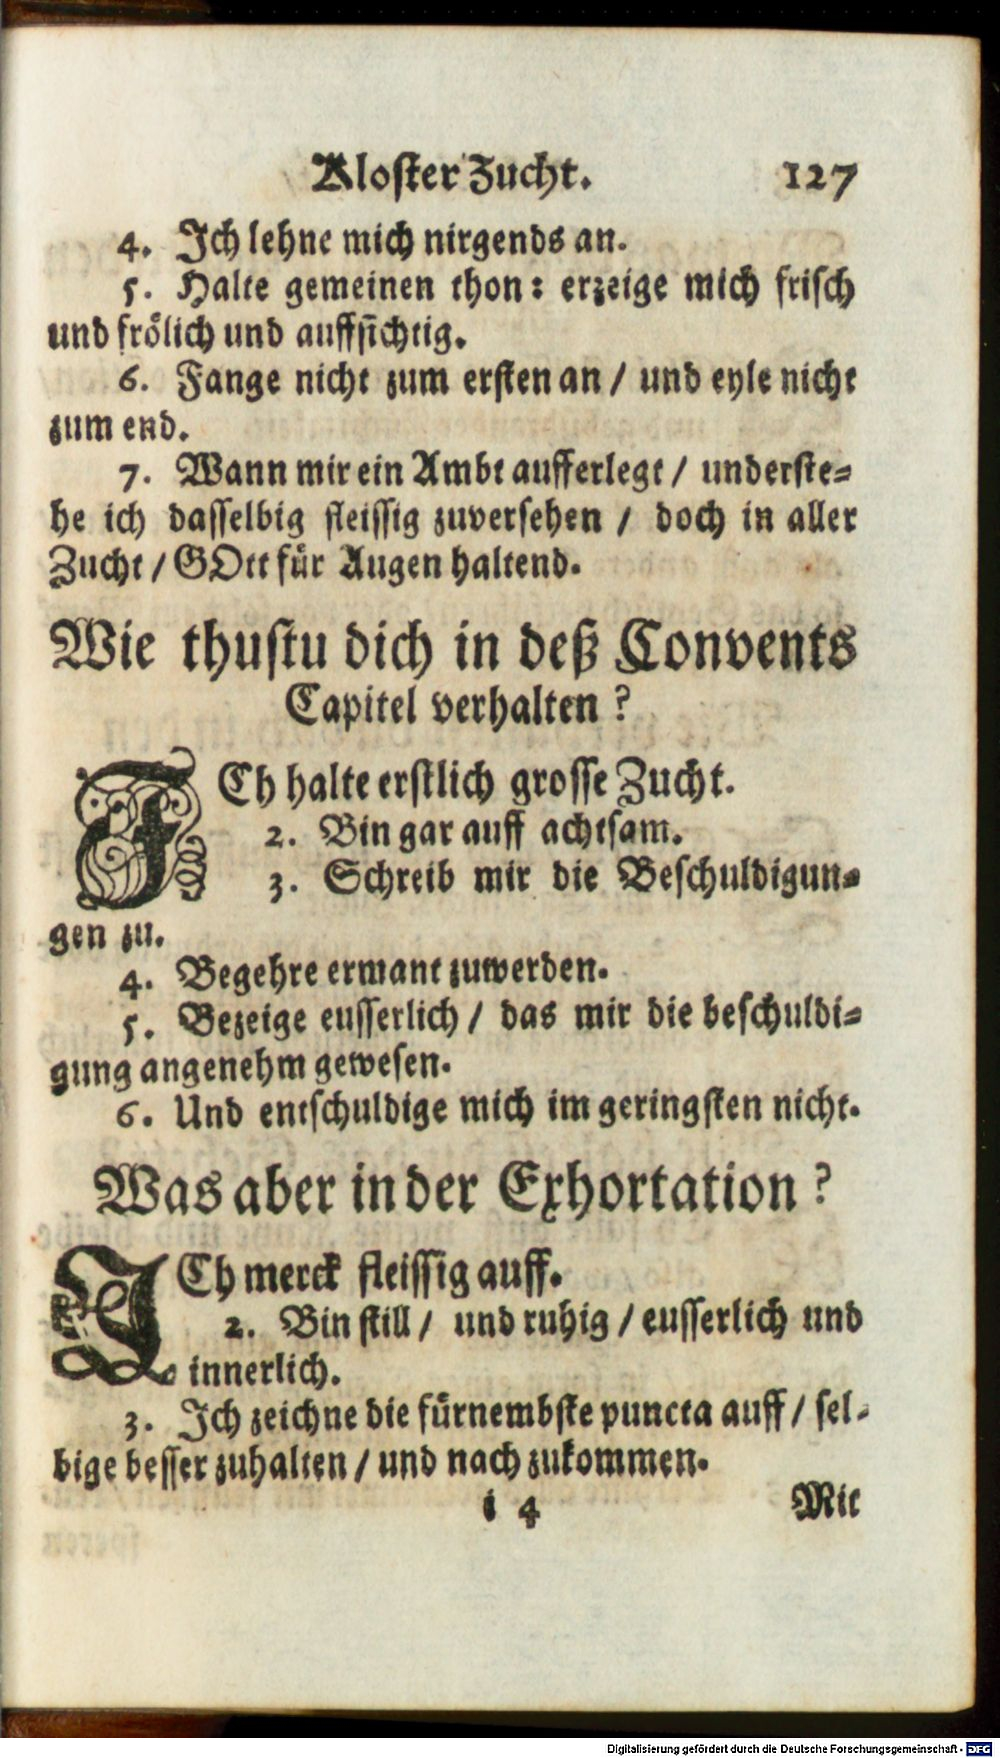 Kloster Zucht. 127
4. Ich lehne mich nirgends an.
5. Halte gemeinen thon: erzeige mich frisch
und frölich und auffsichtig.
6. Fange nicht zum ersten an / und eyle nicht
zum end.
7. Wann mir ein Ambt aufferlegt / underste-
he ich dasselbig fleissig zuversehen / doch in aller
Zucht / GOtt für Augen haltend.
Wie thustu dich in deß Convents
Capitel verhalten?
ICh halte erstlich grosse Zucht.
2. Bin gar auff achtsam.
3. Schreib mir die Beschuldigun-
gen zu.
4. Begehre ermant zuwerden.
5. Bezeige eusserlich / das mir die beschuldi-
gung angenehm gewesen.
6. Und entschuldige mich im geringsten nicht.
Was aber in der Exhortation?
ICh merck fleissig auff.
2. Bin still / und ruhig / eusserlich und
innerlich.
3. Ich zeichne die fürnembste puncta auff / sel-
bige besser zuhalten / und nach zukommen.
i 4 Mit
Digitalisierung gefördert durch die Deutsche Forschungsgemeinschaft - DFG